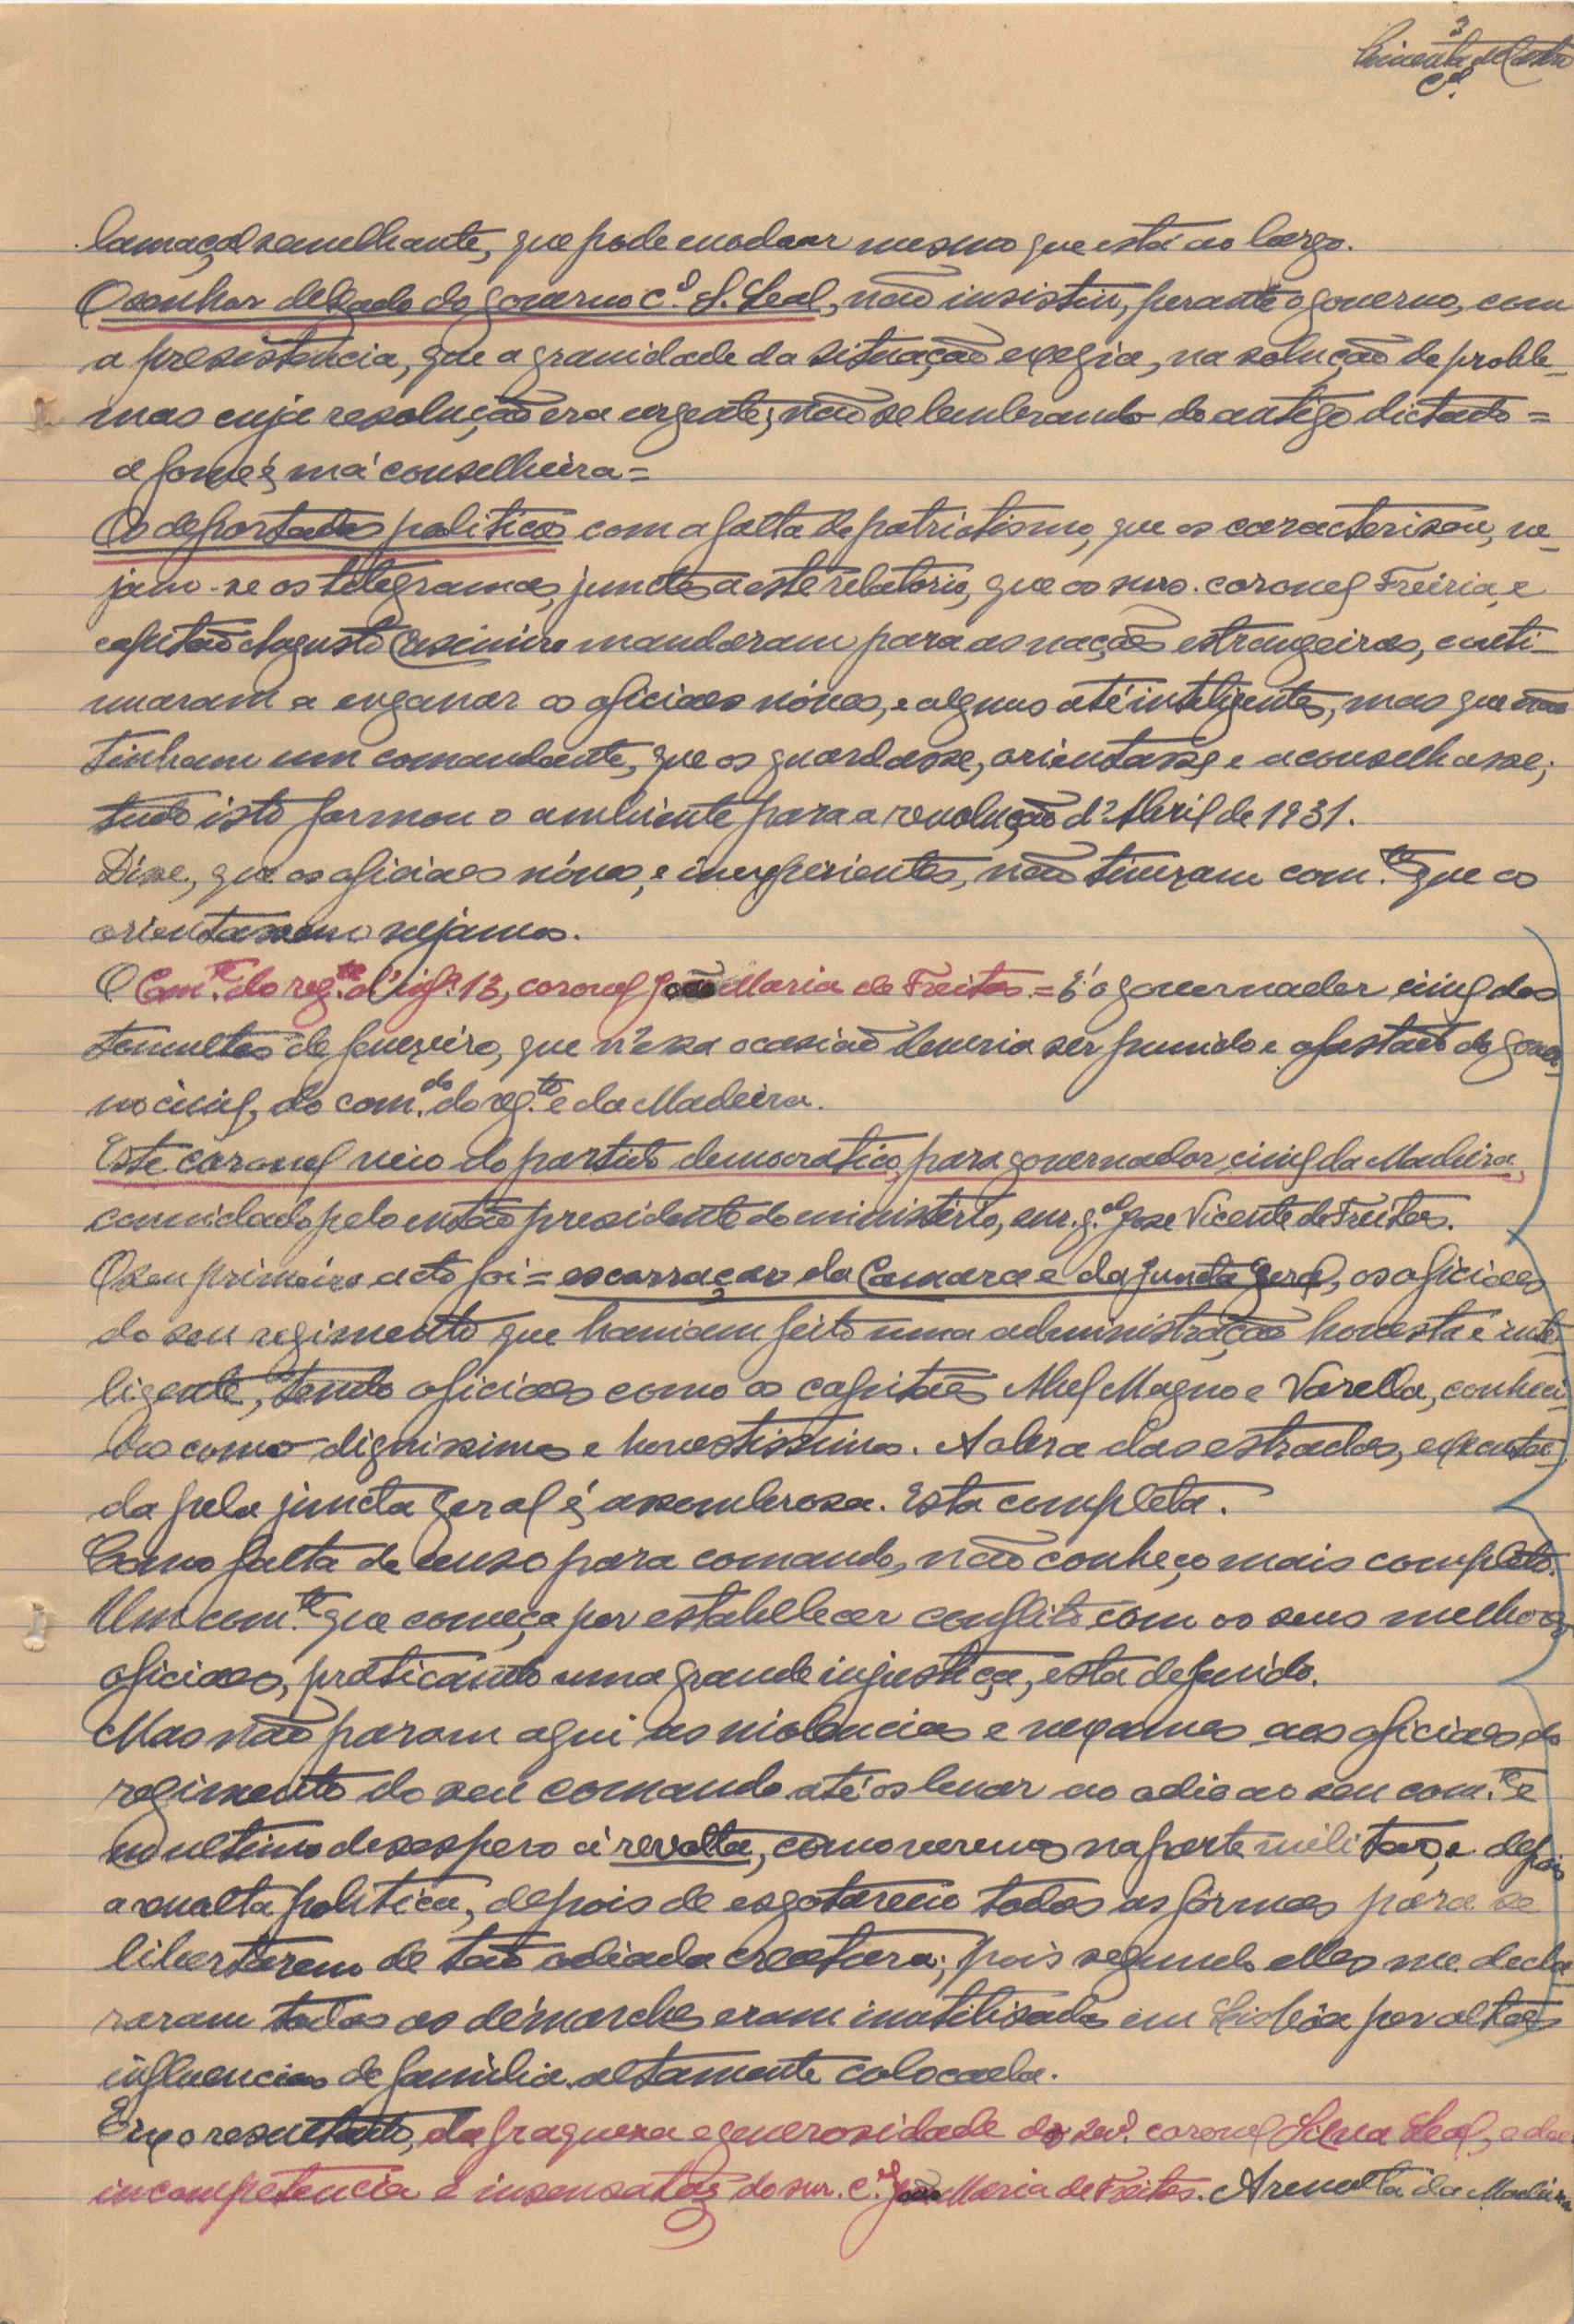 3
Pimenta de Castro
C.el
lamaçal semelhante, que pode enodoar mesmo que está ao largo.
O senhor delegado do governo c.el S. Leal, não insistiu, perante o governo, com
a presistencia, que a gravidade da situação exegia, na solução de proble-
mas cuja resolução era urgente; não se lembrando do antigo dictado =
a fome é má conselheira =
Os deportados politicos com a falta de patriotismo, que os caracterisou, ve-
jam-se os telegramas, junctos a este relatorio, que os snrs. coronel Freiria, e
capitão Augusto Casimiro mandaram para as nações estrangeiras, conti-
nuaram a enganar os oficiaes nóvos, e alguns até inteligentes, mas que não
tinham um comandante, que os guardasse, orientasse e aconselhasse;
tudo isto formou o ambiente para a revolução d'Abril de 1931.
Disse, que os oficiaes nóvos, e inexperientes, não tiveram com.te que os
orientassem vejamos.
O Com.te do reg.to d'inf.a 13, coronel João Maria de Freitas. = É o governador civil dos
tumultos de fevereiro, que n'essa ocasião deveria ser punido e afastado do gover-
no civil, do com.do do reg.to e da Madeira.
Este coronel veio do partido democratico, para governador civil da Madeira,
convidado pelo então presidente do ministerio, snr. g.al Jose Vicente de Freitas.
O seu primeiro acto foi = escorraçar da Camara e da juncta geral, os oficiaes
do seu regimento que haviam feito uma administração honesta e inte-
ligente, tendo oficiaes como os capitães Abel Magno e Varella, conheci-
dos como dignissimos e honestissimos. A obra das estradas, executa-
da pela juncta geral é assombrosa. Esta completa.
Como falta de senso para comando, não conheço mais completo.
Um com.te que começa por estabelecer conflito com os seus melhores
oficiaes, praticando uma grande injustiça, esta defenido.
Mas não param aqui as violencias e vexames aos oficiaes do
regimento do seu comando até os levar ao odio ao seu com.te e
no ultimo desespero á revolta, como veremos na parte militar, e depois
a revolta politica, depois de esgotarem todas as fórmas para se
libertarem de tão odiada creatura; pois segundo elles me decla-
raram todas as démarches eram inutilisadas em Lisbôa por altas
influencias de familia altamente colocada.
Eis o resultado, da fraqueza e generosidade do snr. coronel Silva Leal, e da
incompetencia e insensatez do snr. c.el João Maria de Freitas. A revolta da Madeira